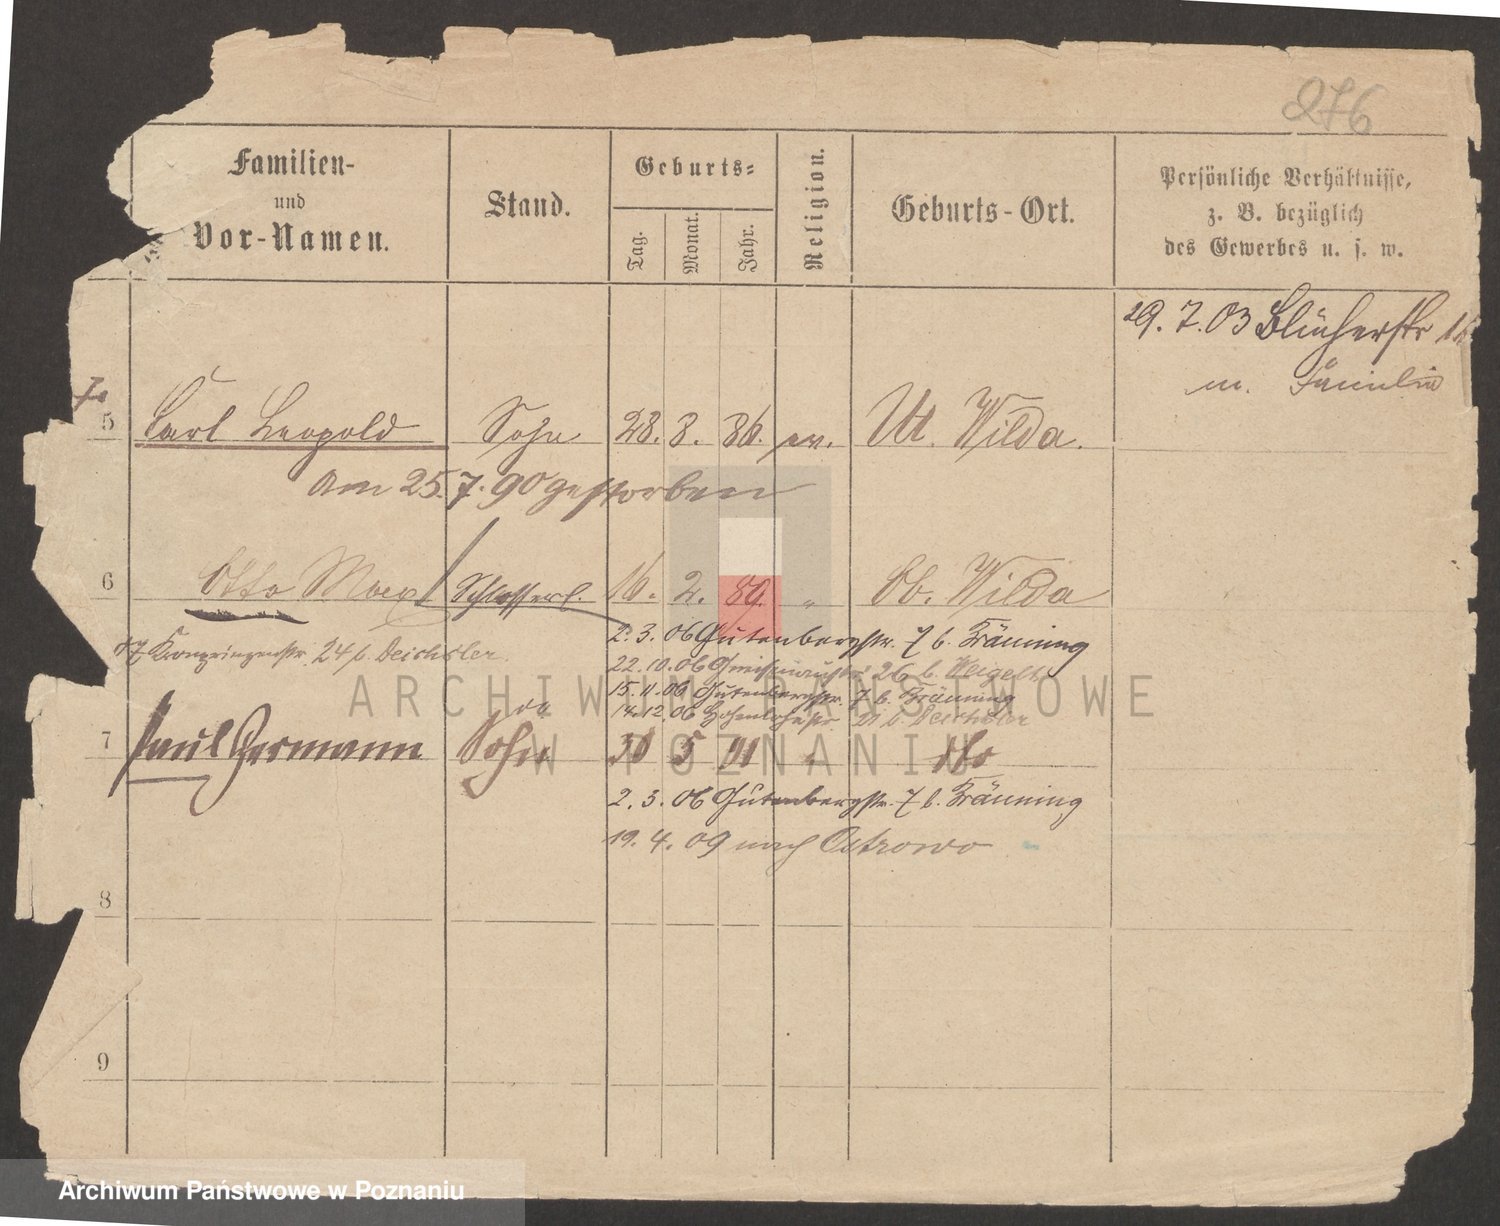 276
Familien-
und
Vor-Namen.
Stand.
Geburts-
Tag.
Monat.
Jahr.
Religion.
Geburts-Ort.
Persönliche Verhältnisse,
z. B. bezüglich
des Gewerbes u. s. w.
29. 7. 03 Blücherstr
m. Familie
5 Carl Leopold Sohn 28. 8. 86. ev. Ut. Wilda.
am 25. 7. 90 gestorben
6 Otto Max Schlosserl. 16. 2. 89. " Ob. Wilda
2. 3. 06 Gutenbergstr. 7 b. Bränning
07 Kronprinzenstr. 24 b. Deichsler
22. 10. 06 Gneisenaustr. 26 b. Weigelt
15. 11. 06 Gutenbergstr. 7 b. Bränning
14. 12. 06 Hohenlohestr. 21 b. Deichsler
7 Paul Hermann Sohn 30 5 91 " dto
2. 3. 06 Gutenbergstr. 7 b. Bränning
19. 4. 09 nach Ostrowo
8
9
ARCHIWUM PAŃSTWOWE
W POZNANIU
Archiwum Państwowe w Poznaniu